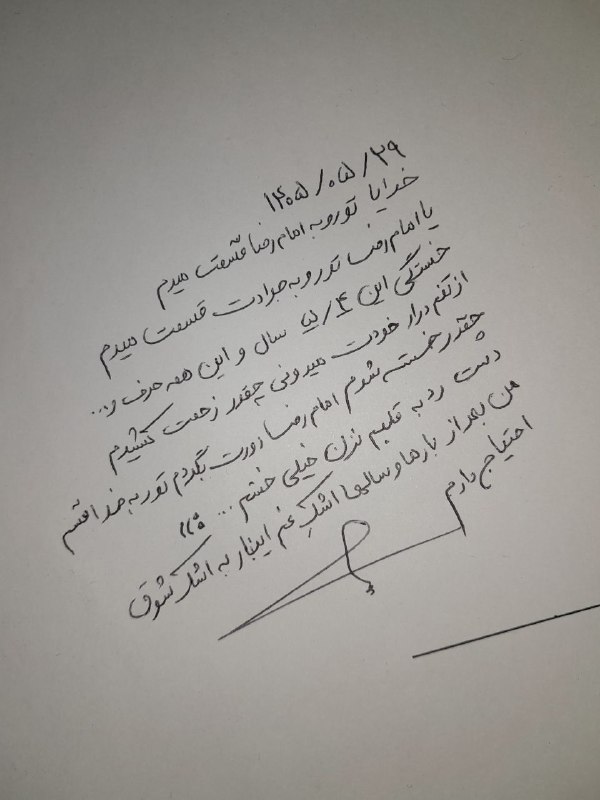 ۱۴۰۵/۰۵/۲۹
خدایا تورو به امام رضا قسمت میدم
یا امام رضا تورو به جوادت قسمت میدم
خستگی این ۴/۵ سال و این همه حرف و...
از تنم درار خودت میدونی چقدر زحمت کشیدم
چقدر خسته شدم امام رضا دورت بگردم تورو به خدا قسم
دست رد به قلبم نزن خیلی خستم ...
من بعد از بارها و سالها اشکِ غم اینبار به اشک شوق
احتیاج دارم